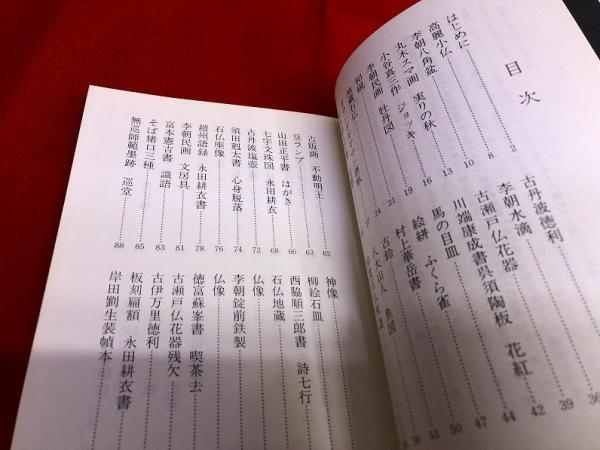 目次
はじめに 2
高麗小仏 8
李朝八角盆 10
丸木スマ画 実りの秋 13
小谷真三作 ジョッキ 16
李朝民画 牡丹図 19
初硯 21
古丹波徳利 36
李朝水滴 39
古瀬戸仏花器 42
川端康成書呉須陶板 花紅 44
馬の目皿 47
絵絣 ふくら雀 50
村上華岳書 53
古鈴
古版画 不動明王 62
豆ランプ 63
山田正平書 はがき 66
七字文珠図 永田耕衣 68
古丹波塩壺 72
須田剋太書 心身脱落 74
石仏座像 76
趙州語録 永田耕衣書 78
李朝民画 文房具 81
富本憲吉書 識語 83
そば猪口三種 85
無巡師範墨跡 巡堂 88
神像
柳絵石皿
西脇順三郎書 詩七行
石仏地蔵
仏像
李朝錠前鉄製
仏像
徳富蘇峯書 喫茶去
古瀬戸仏花器残欠
古伊万里徳利
板刻扁額 永田耕衣書
岸田劉生装幀本